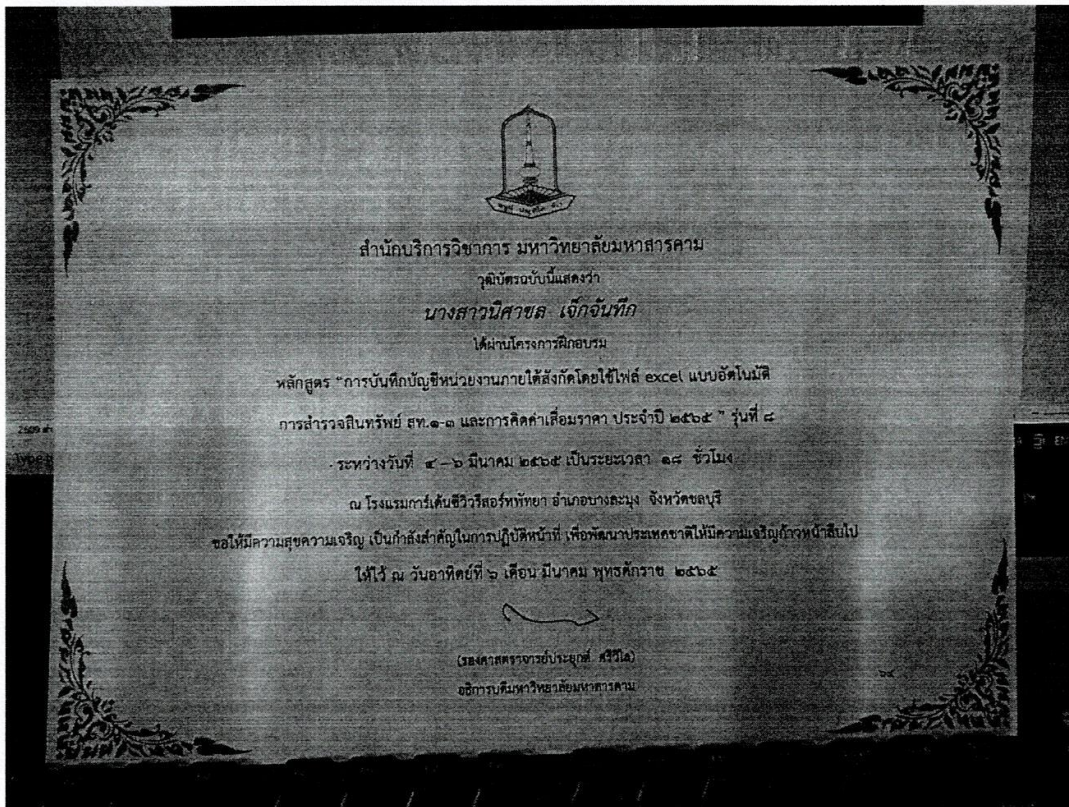 สำนักบริการวิชาการ มหาวิทยาลัยมหาสารคาม
วุฒิบัตรฉบับนี้แสดงว่า
นางสาวนิศาชล เจ็กจันทึก
ได้ผ่านโครงการฝึกอบรม
หลักสูตร "การบันทึกบัญชีหน่วยงานภายใต้สังกัดโดยใช้ไฟล์ excel แบบอัตโนมัติ
การสำรวจสินทรัพย์ สท.๑-๓ และการคิดค่าเสื่อมราคา ประจำปี ๒๕๖๕ " รุ่นที่ ๘
ระหว่างวันที่ ๔ – ๖ มีนาคม ๒๕๖๕ เป็นระยะเวลา ๑๘ ชั่วโมง
ณ โรงแรมการ์เด้นซีวิวรีสอร์ทพัทยา อำเภอบางละมุง จังหวัดชลบุรี
ขอให้มีความสุขความเจริญ เป็นกำลังสำคัญในการปฏิบัติหน้าที่ เพื่อพัฒนาประเทศชาติให้มีความเจริญก้าวหน้าสืบไป
ให้ไว้ ณ วันอาทิตย์ที่ ๖ เดือน มีนาคม พุทธศักราช ๒๕๖๕
(รองศาสตราจารย์ประยุกต์ ศรีวิไล)
อธิการบดีมหาวิทยาลัยมหาสารคาม